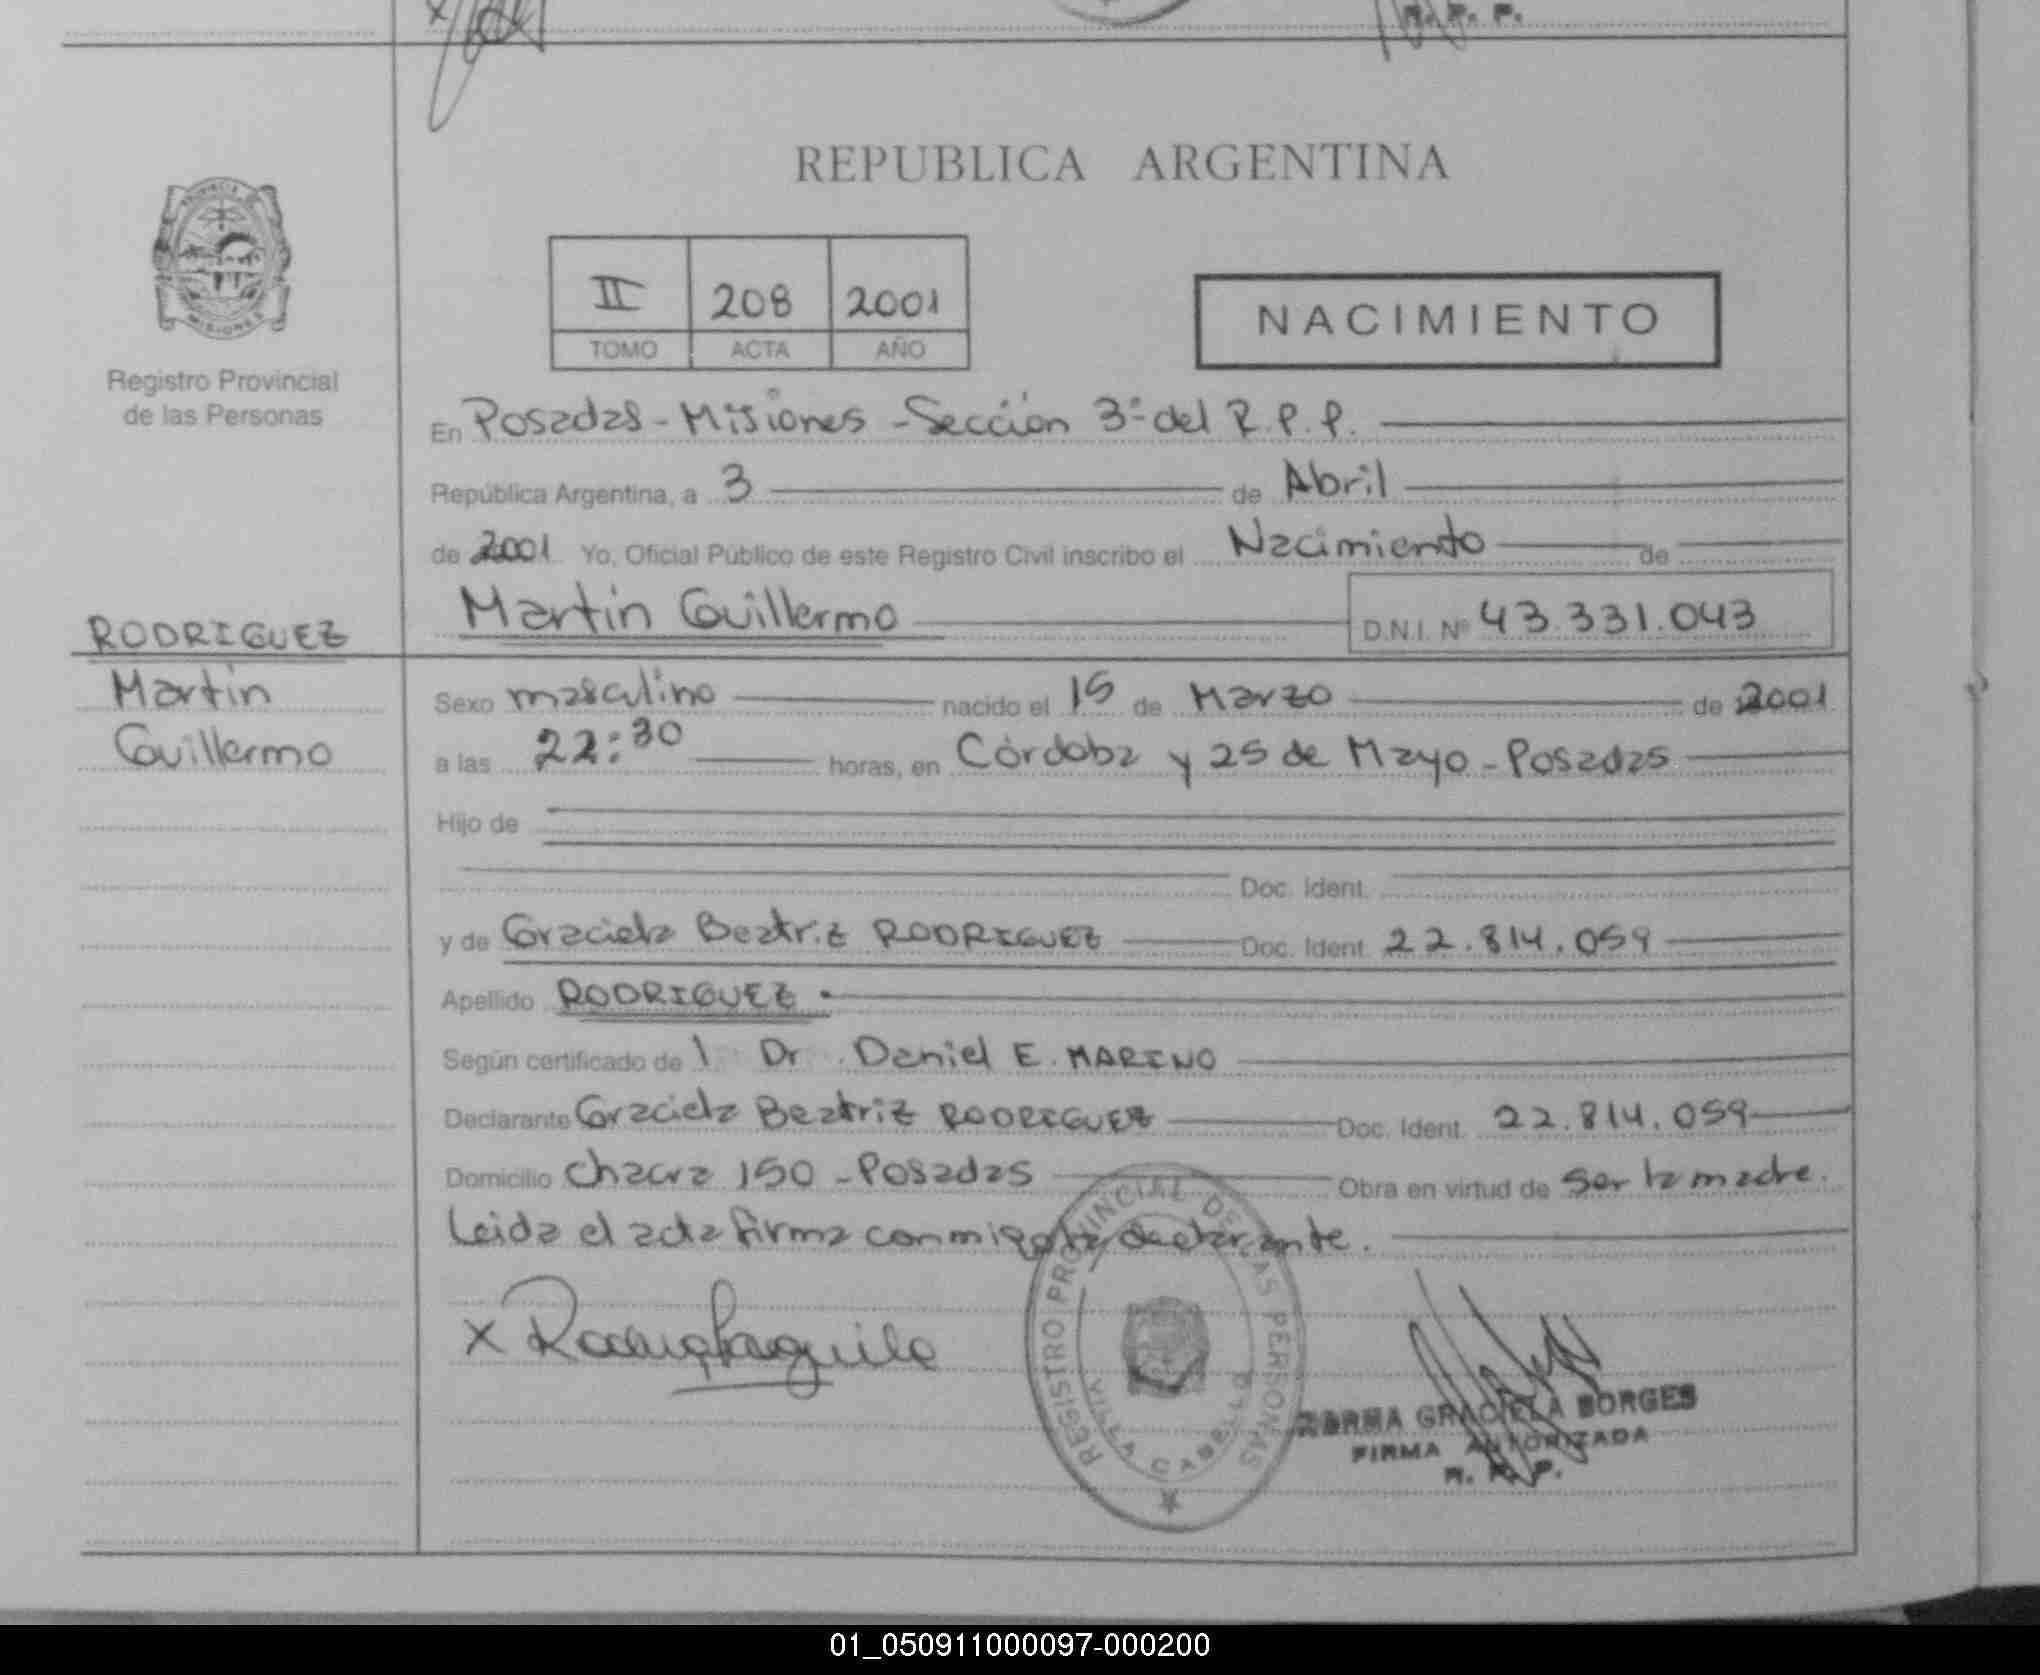 R. P. P.
REPUBLICA ARGENTINA
PROVINCIA DE
MISIONES
Registro Provincial
de las Personas
II 208 2001
TOMO ACTA AÑO
NACIMIENTO
En Posadas - Misiones - Sección 3º del R.P.P.
República Argentina, a 3 de Abril
de 2001 Yo, Oficial Público de este Registro Civil inscribo el Nacimiento de
Martín Guillermo D.N.I. Nº 43.331.043
RODRIGUEZ
Martín
Guillermo
Sexo masculino nacido el 15 de Marzo de 2001
a las 22:30 horas, en Córdoba y 25 de Mayo - Posadas
Hijo de
Doc. Ident.
y de Graciela Beatriz RODRIGUEZ Doc. Ident. 22.814.059
Apellido RODRIGUEZ.
Según certificado de l Dr. Daniel E. MARINO
Declarante Graciela Beatriz RODRIGUEZ Doc. Ident. 22.814.059
Domicilio Chacra 150 - Posadas Obra en virtud de ser la madre.
Leida el acta firma conmigo la declarante.
X
REGISTRO PROVINCIAL DE LAS PERSONAS
VILLA CABELLO
NORMA GRACIELA BORGES
FIRMA AUTORIZADA
R. P. P.
01_050911000097-000200